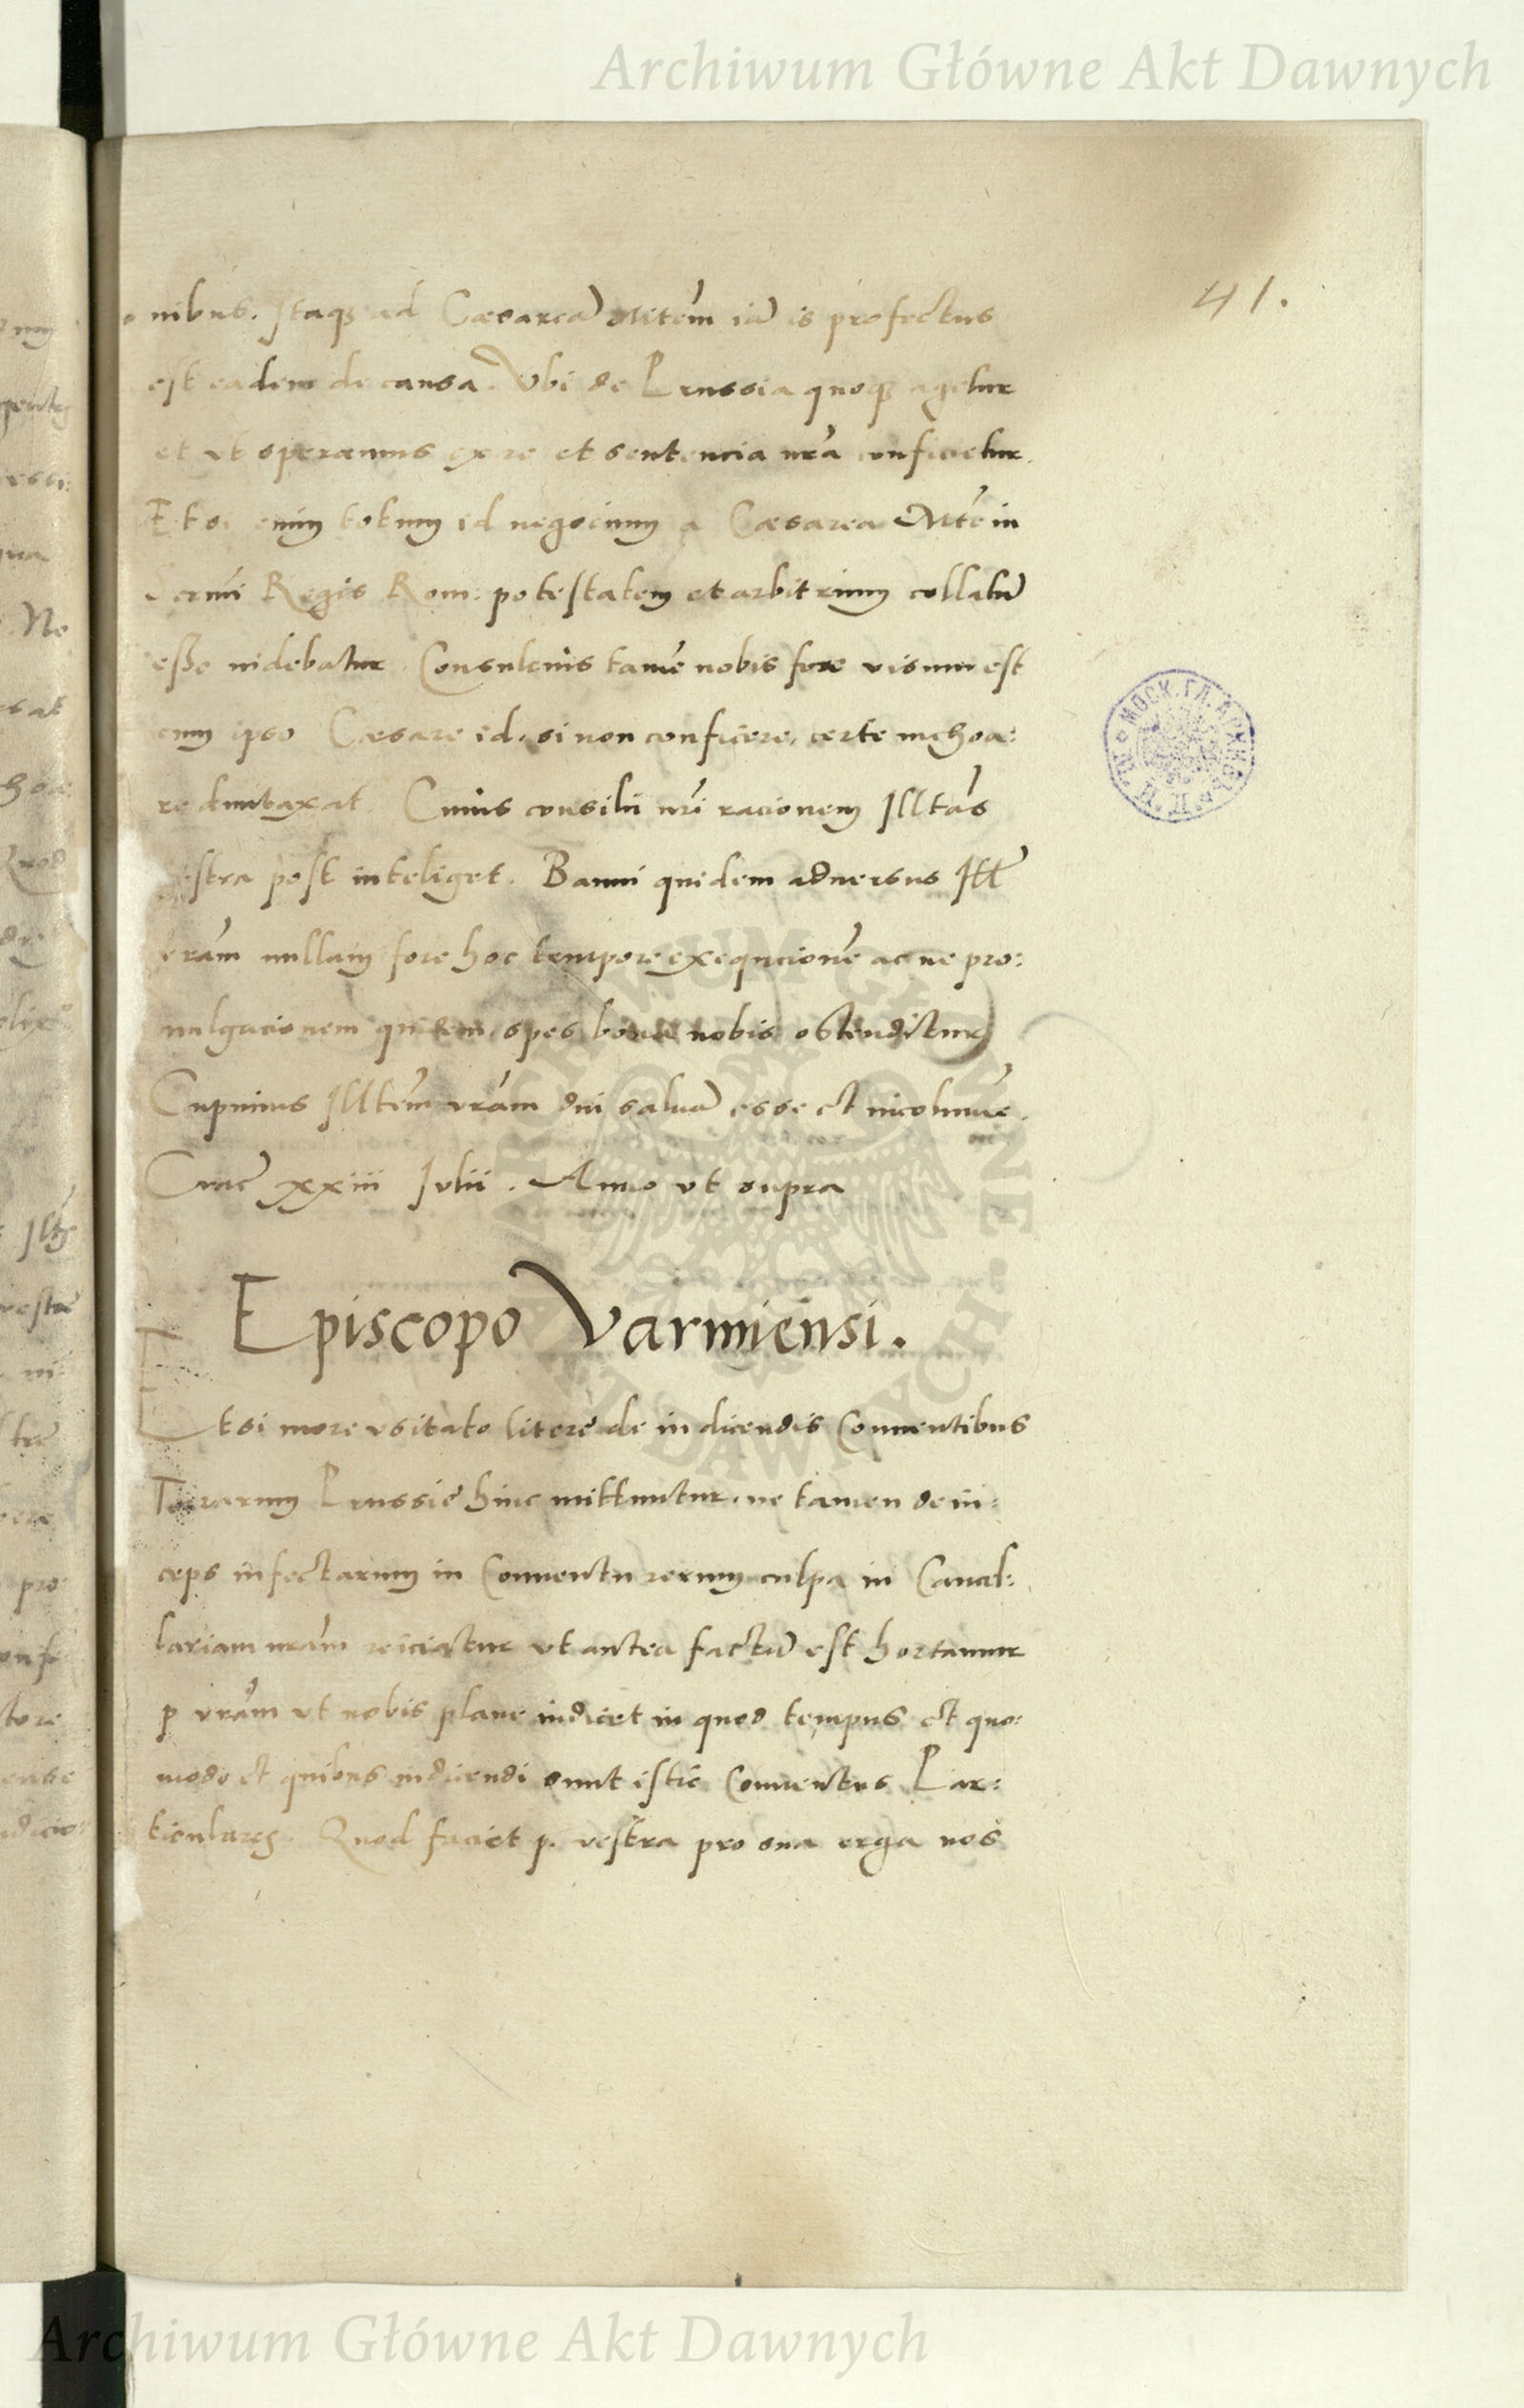 Archiwum Główne Akt Dawnych
41.
nibus. Itaq₃ ad Cæsareā Mtem̄ iā is profectus
est eadem de causa. Vbi de Prussia quoq₃ agetur
et vt speramus ex re et sentencia nrā conficietur.
Etsi enim totum id negocium a Cæsarea Mte in
Sermi Regis Rom: potestatem et arbitrium collatū
esse uidebatur. Consulcius tamē nobis fore visum est
cum ipso Cæsare id, si non conficere, certe inchoa:
re duntaxat. Cuius consilii nrī racionem Illtās
vestra post inteliget. Banni quidem aduersus Ill
vrām nullam fore hoc tempore exequcionē ac ne pro:
mulgacionem quidem, spes bona nobis ostenditur
Cupimus Illtēm vrām diu saluā esse et incolumē.
Crac̄ xxiii Iulii. Anno vt supra
Episcopo Varmiensi.
Etsi more vsitato literē de indicendis Conuentibus
Terrarum Prussiē hinc mittuntur, ne tamen dein:
ceps infectarum in Conuentu rerum culpa in Cancel:
lariam nrām reiiciatur vt antea factū est hortamur
p vrām vt nobis plane indicet in quod tempus et quo:
modo et quibus indicendi sunt istic Conuentus Par:
ticulares. Quod faciet p. vestra pro sua erga nos
Archiwum Główne Akt Dawnych